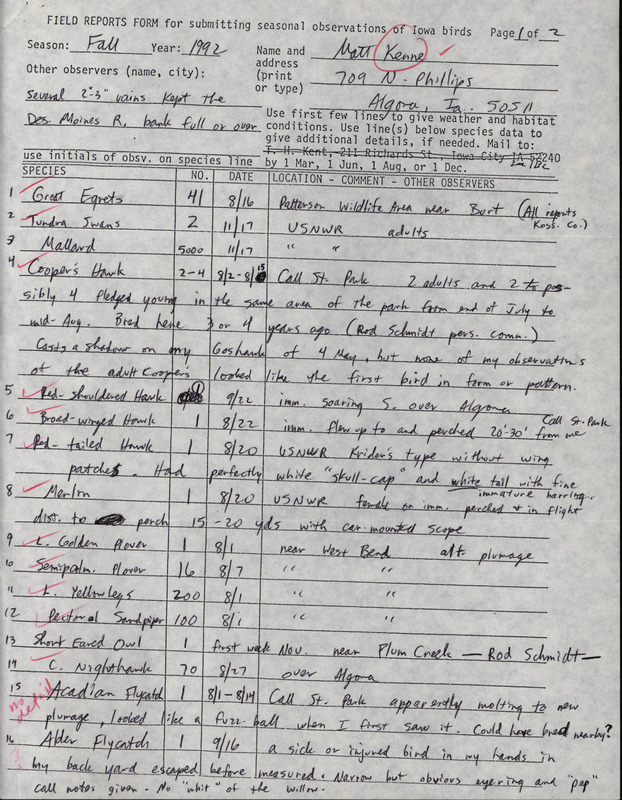 FIELD REPORTS FORM for submitting seasonal observations of Iowa birds Page 1 of 2
Season: Fall Year: 1992 Name and address (print or type) Matt Kenne
709 N. Phillips
Algona, Ia. 50511
Other observers (name, city):
Several 2"-3" rains kept the
Des Moines R. bank full or over
Use first few lines to give weather and habitat
conditions. Use line(s) below species data to
give additional details, if needed. Mail to:
T. H. Kent, 211 Richards St., Iowa City IA 52240
by 1 Mar, 1 Jun, 1 Aug, or 1 Dec.
use initials of obsv. on species line
SPECIES NO. DATE LOCATION - COMMENT - OTHER OBSERVERS
1 Great Egrets 41 8/16 Patterson Wildlife Area near Burt (All reports Koss. Co.)
2 Tundra Swans 2 11/17 USNWR adults
3 Mallard 5000 11/17 " "
4 Cooper's Hawk 2-4 8/2-8/15 Call St. Park 2 adults and 2 to pos-
sibly 4 fledged young in the same area of the park from end of July to
mid-Aug. Bred here 3 or 4 years ago (Rod Schmidt pers. comm.)
Casts a shadow on my Goshawk of 4 May, but none of my observations
of the adult Coopers looked like the first bird in form or pattern.
5 Red-shouldered Hawk 1 9/22 imm. soaring S. over Algona
6 Broad-winged Hawk 1 8/22 imm. flew up to and perched 20'-30' from me Call St. Park
7 Red-tailed Hawk 1 8/20 USNWR Krider's type without wing
patches. Had perfectly white "skull-cap" and white tail with fine
immature barring..
8 Merlin 1 8/20 USNWR female or imm. perched & in flight
dist. to perch 15-20 yds with car-mounted scope
9 L. Golden Plover 1 8/1 near West Bend alt. plumage
10 Semipalm. Plover 16 8/7 " "
11 L. Yellowlegs 200 8/1 " "
12 Pectoral Sandpiper 100 8/1 " "
13 Short Eared Owl 1 first week Nov. near Plum Creek — Rod Schmidt —
14 C. Nighthawk 70 8/27 over Algona
15 Acadian Flycatch 1 8/1-8/14 Call St. Park apparently molting to new
no detail
plumage, looked like a fuzz ball when I first saw it. Could have bred nearby?
16 Alder Flycatch 1 9/16 a sick or injured bird in my hands in
my back yard escaped before measured. Narrow but obvious eyering and "pep"
call notes given. No "whit" of the willow.